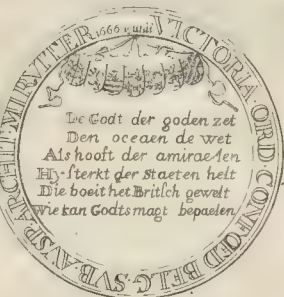 VICTORIA ORD·CONFOED BELG·SVB·AVSP·ARCHIT·MI·RVITER 1666
De Godt der goden zet
Den oceaen de wet
Als hooft der amiraelen
Hy sterkt der Staeten helt
Die boeit het Britſch gewelt
Wie kan Godts magt bepaelen